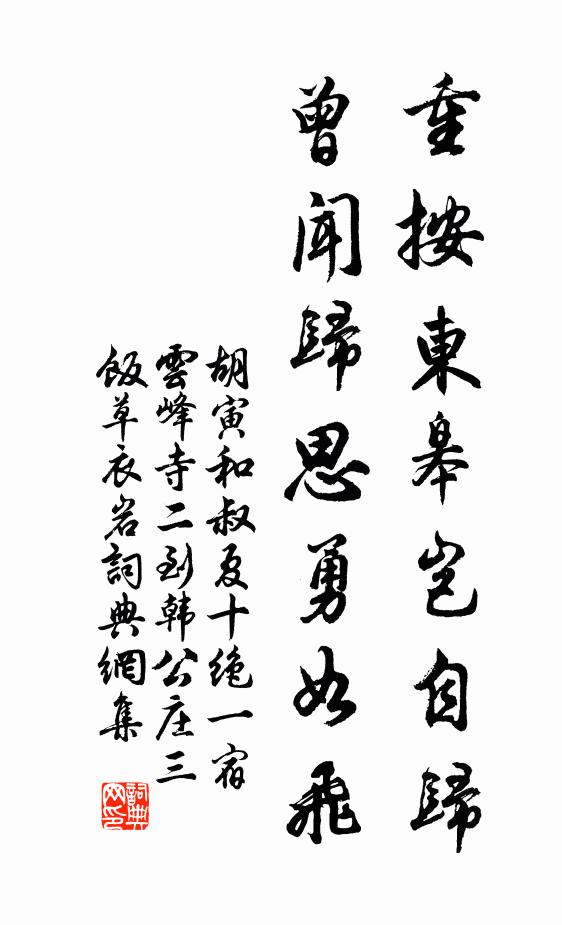 重按東皋豈自歸
曾聞歸思勇如飛
胡寅和叔夏十绝一宿
雲峰寺二到韩公庄三
飯草衣岩詞典網集
詞典网印